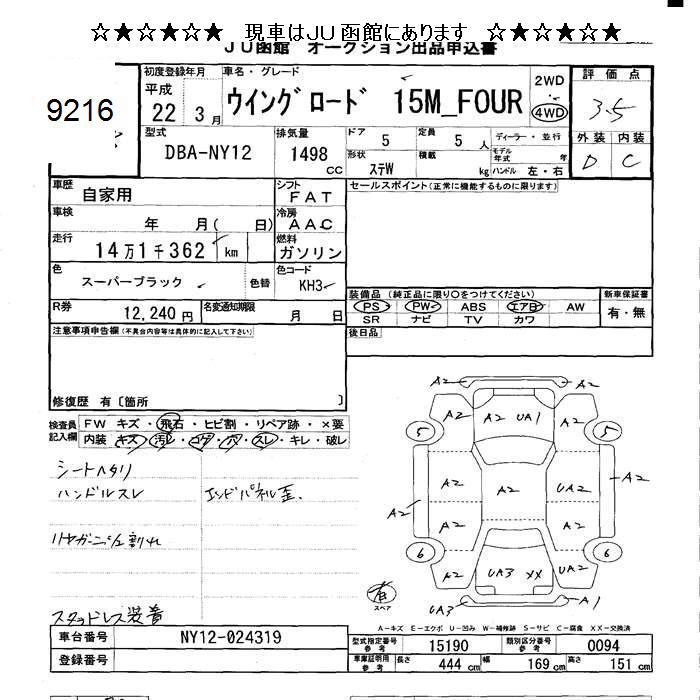 ☆★☆★☆★ 現車はJU函館にあります ☆★☆★☆★
JU函館 オークション出品申込書
9216
初度登録年月 車名・グレード 2WD 評価点
平成 22 3月 ウイングロード 15M_FOUR 4WD 3.5
型式 排気量 ドア 定員 ディーラー・並行 外装 内装
DBA-NY12 1498 CC 5 5 人 モデル年式 年 D C
形状 ステW 積載 kg ハンドル 左・右
車歴 自家用 シフト FAT セールスポイント(正常に機能するものに限ります)
車検 年 月( 日) 冷房 AAC
走行 14万1千362 km 燃料 ガソリン
色 スーパーブラック 色替 色コード KH3
装備品 (純正品に限り○をつけてください) 新車保証書
PS PW ABS エアB AW 有・無
SR ナビ TV カワ
R券 12,240円 名変通知期限 月 日
注意事項申告欄(不具合内容等は具体的に記入して下さい) 後日品
修復歴 有〔箇所 〕
検査員記入欄 FW キズ・飛石・ヒビ割・リペア跡・X要
内装 キズ・汚レ・コゲ・穴・スレ・キレ・破レ
シートヘタリ
ハンドルスレ エンドパネル歪.
リヤガーニッシュ割れ
スタッドレス装着
A2 A2
A2 A2 UA1 A2
5 5
A2 A2 UA2 A2
A2
A2 A2
6 6
A2 UA3 XX UA2
有 スペア UA3 A1
A-キズ E-エクボ U-凹み W-補修跡 S-サビ C-腐食 XX-交換済
車台番号 NY12-024319 型式指定番号 参考 15190 類別区分番号 参考 0094
登録番号 車庫証明用 参考 長さ 444 cm 幅 169 cm 高さ 151 cm